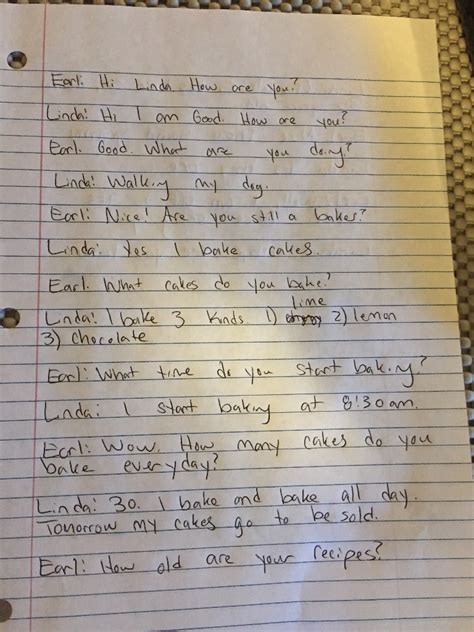 Earl: Hi Linda. How are you?
Linda: Hi I am Good. How are you?
Earl: Good. What are you doing?
Linda: Walking my dog.
Earl: Nice! Are you still a baker?
Linda: Yes I bake cakes.
Earl: What cakes do you bake?
lime
Linda: I bake 3 kinds 1) 2) lemon
3) chocolate
Earl: What time do you start baking?
Linda: I start baking at 8:30am.
Earl: Wow. How many cakes do you
bake everyday?
Linda: 30. I bake and bake all day.
Tomorrow my cakes go to be sold.
Earl: How old are your recipes?